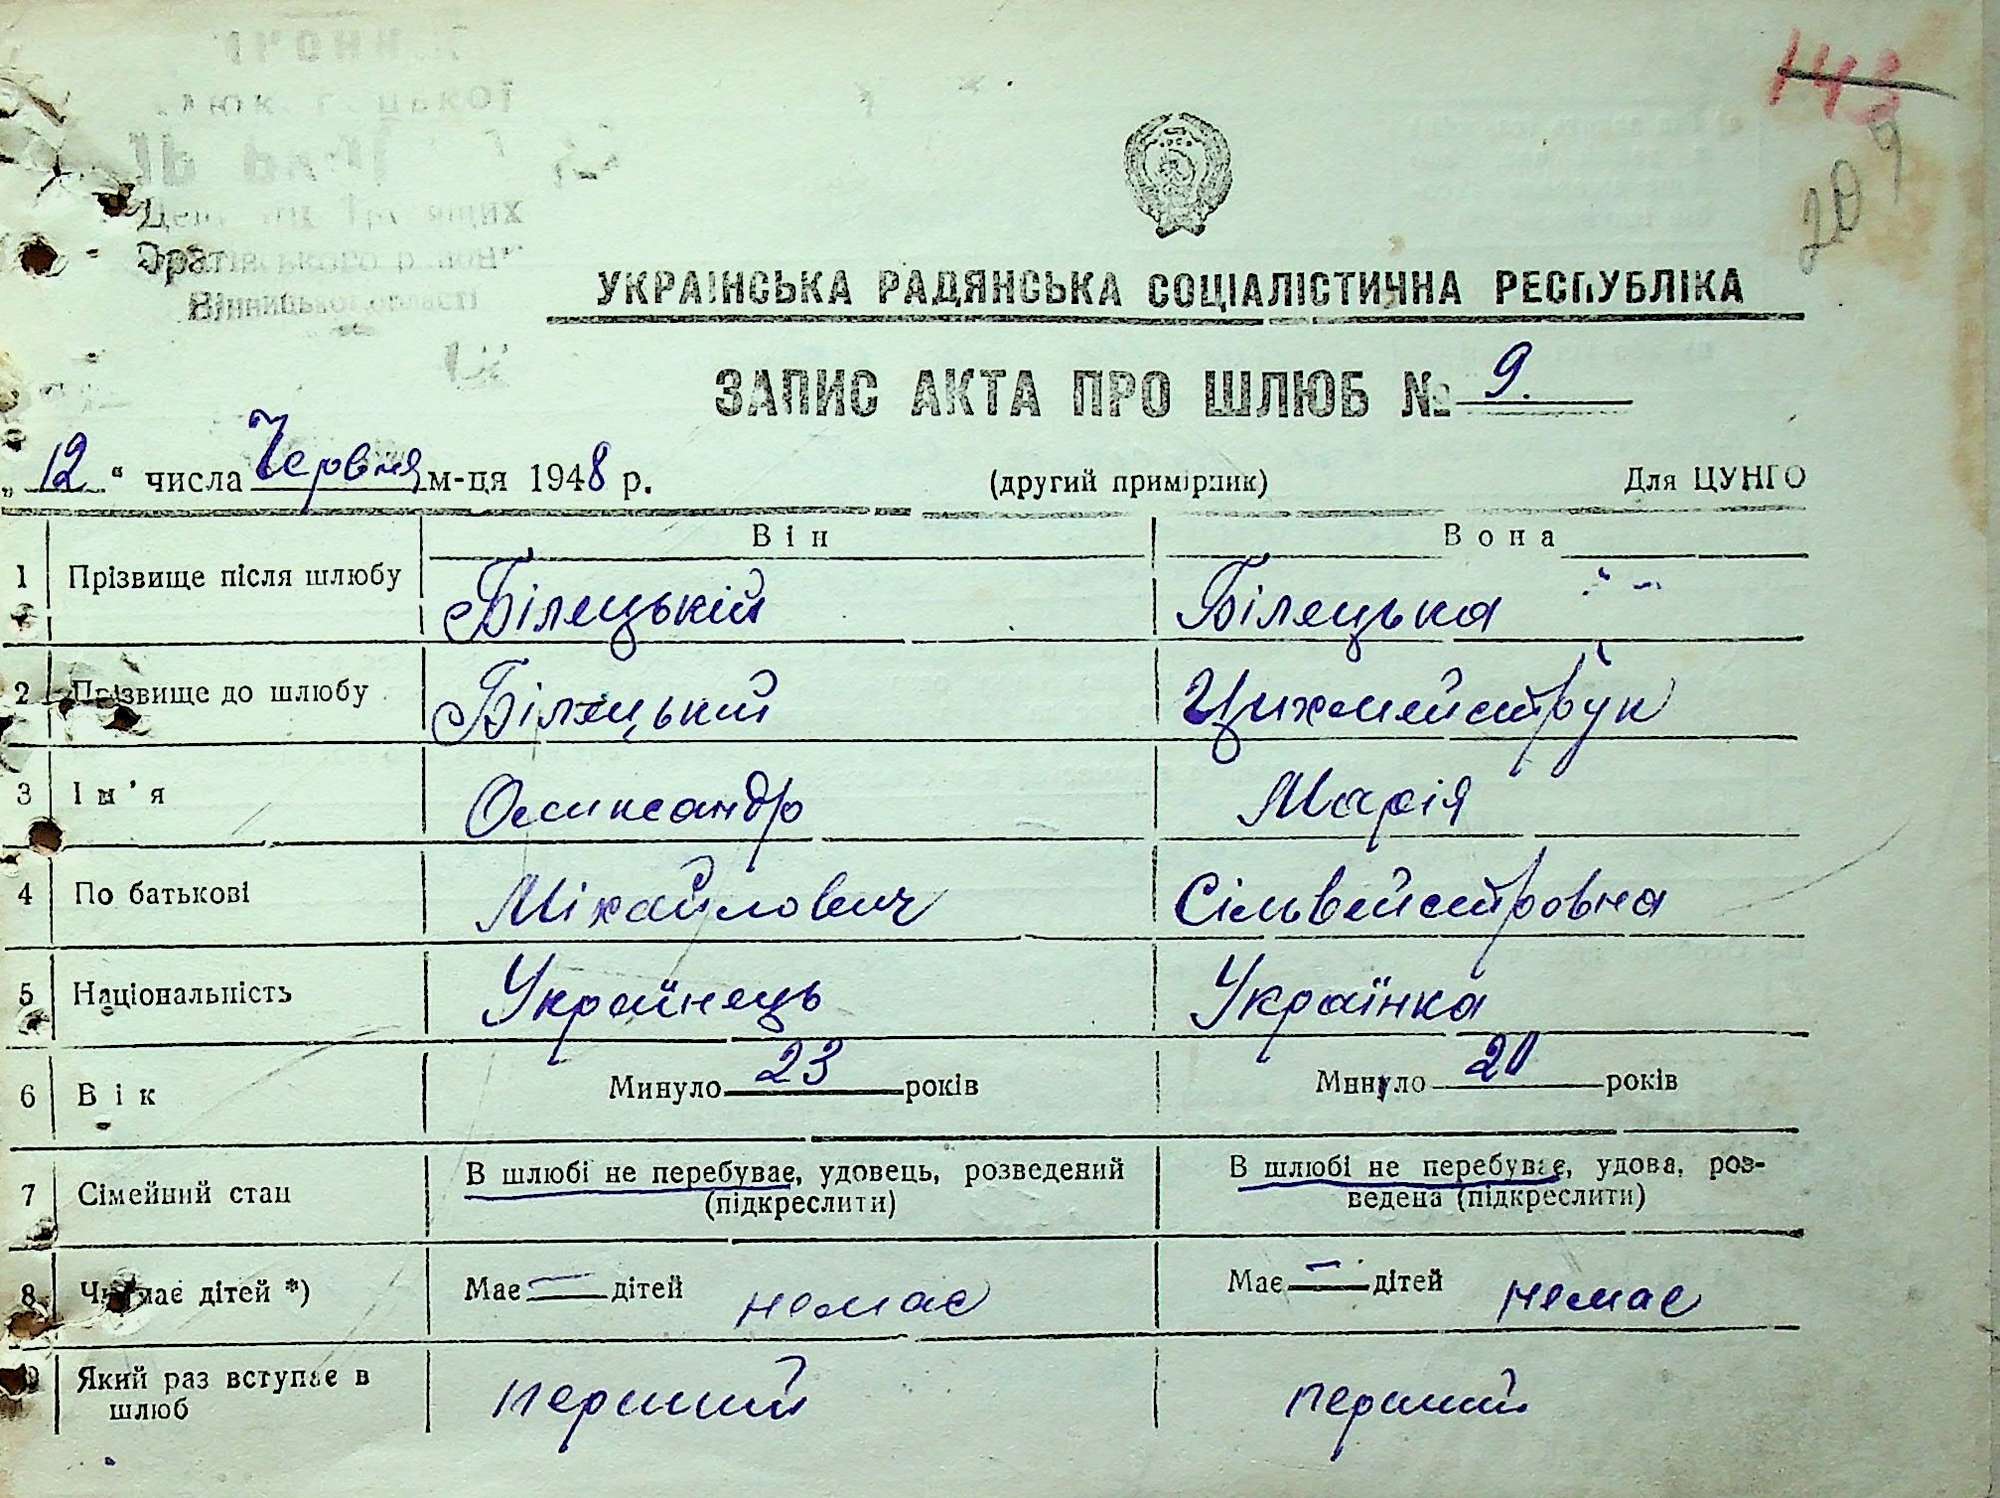 143
209
Вінницької області
УКРАЇНСЬКА РАДЯНСЬКА СОЦІАЛІСТИЧНА РЕСПУБЛІКА
ЗАПИС АКТА ПРО ШЛЮБ № 9.
„12“ числа Червня м-ця 1948 р. (другий примірник) Для ЦУНГО
Він Вона
1 Прізвище після шлюбу Білецькій Білецька
2 Прізвище до шлюбу Білецький Цихмейструк
3 Ім'я Олександр Марія
4 По батькові Міхайлович Сільвейстровна
5 Національність Українець Українка
6 Вік Минуло 23 років Минуло 20 років
7 Сімейний стан В шлюбі не перебуває, удовець, розведений (підкреслити) В шлюбі не перебуває, удова, роз-
ведена (підкреслити)
8 Чи має дітей *) Має — дітей немає Має — дітей немає
9 Який раз вступає в шлюб перший перший